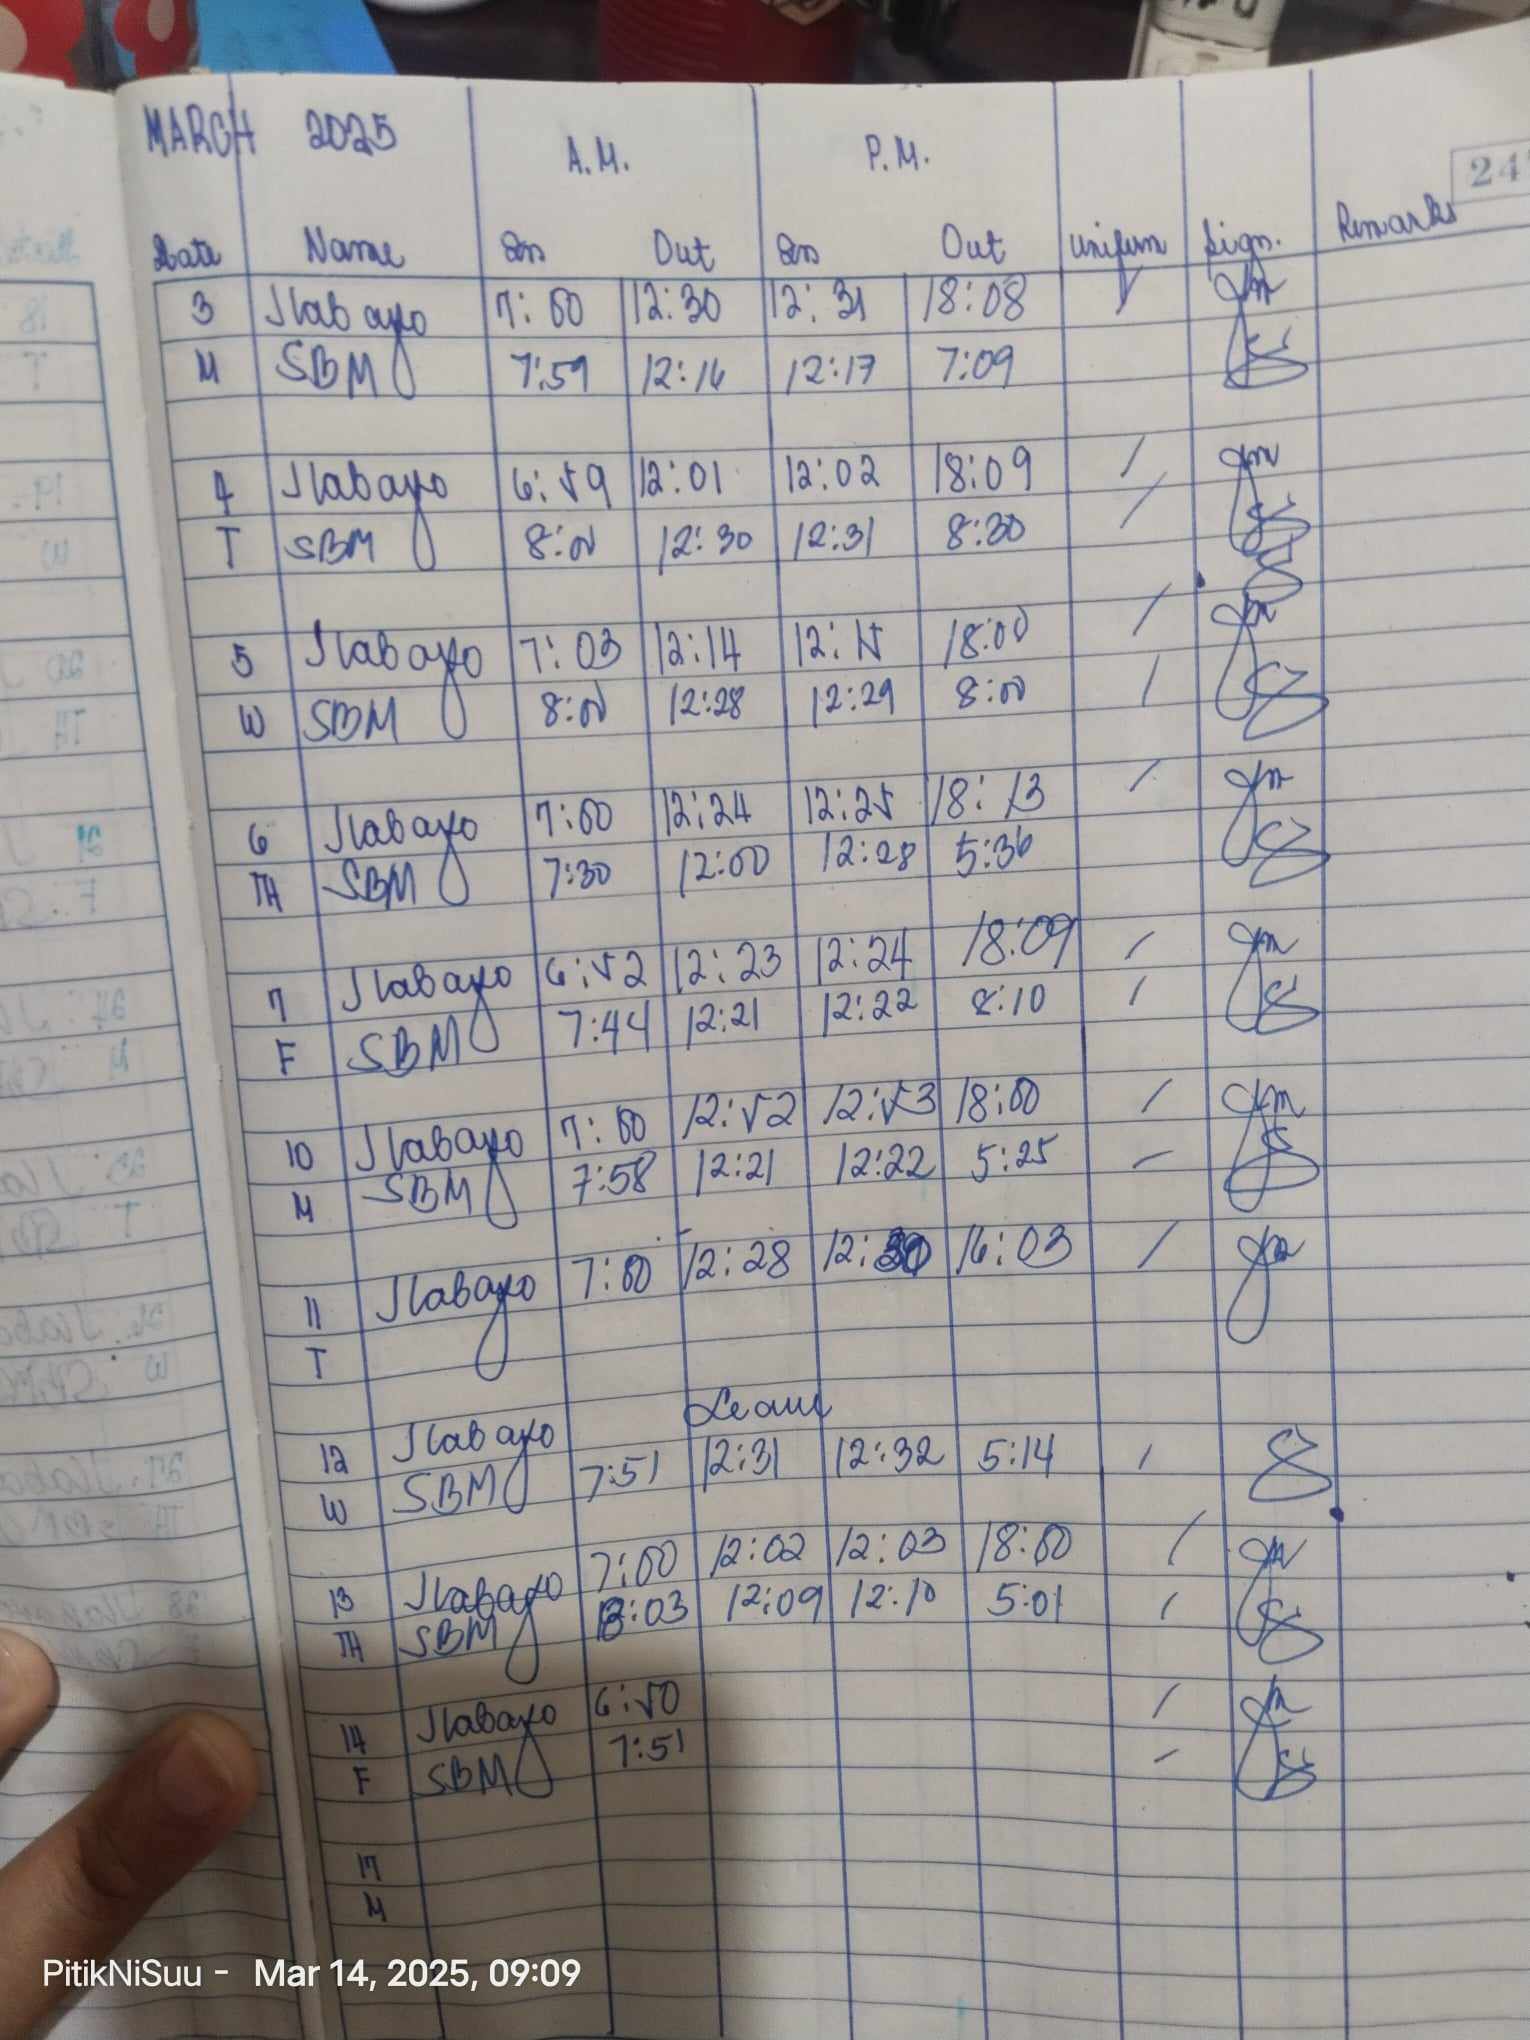 MARCH 2025 A.M. P.M.
24
Date Name In Out In Out Uniform Sign. Remarks
3 Jlabayo 7:00 12:30 12:31 18:08
M SBM 7:59 12:16 12:17 7:09
4 Jlabayo 6:59 12:01 12:02 18:09 /
T SBM 8:00 12:30 12:31 8:30 /
5 Jlabayo 7:03 12:14 12:15 18:00 /
W SBM 8:00 12:28 12:29 8:00 /
6 Jlabayo 7:00 12:24 12:25 18:13 /
TH SBM 7:30 12:00 12:28 5:36
7 Jlabayo 6:52 12:23 12:24 18:09 /
F SBM 7:44 12:21 12:22 8:10 /
10 Jlabayo 7:00 12:52 12:53 18:00 /
M SBM 7:58 12:21 12:22 5:25 /
11 Jlabayo 7:00 12:28 12:30 16:03 /
T
12 Jlabayo Leave
W SBM 7:51 12:31 12:32 5:14 /
13 Jlabayo 7:00 12:02 12:03 18:00 /
TH SBM 8:03 12:09 12:10 5:01 /
14 Jlabayo 6:50 /
F SBM 7:51 /
17
M
PitikNiSuu - Mar 14, 2025, 09:09